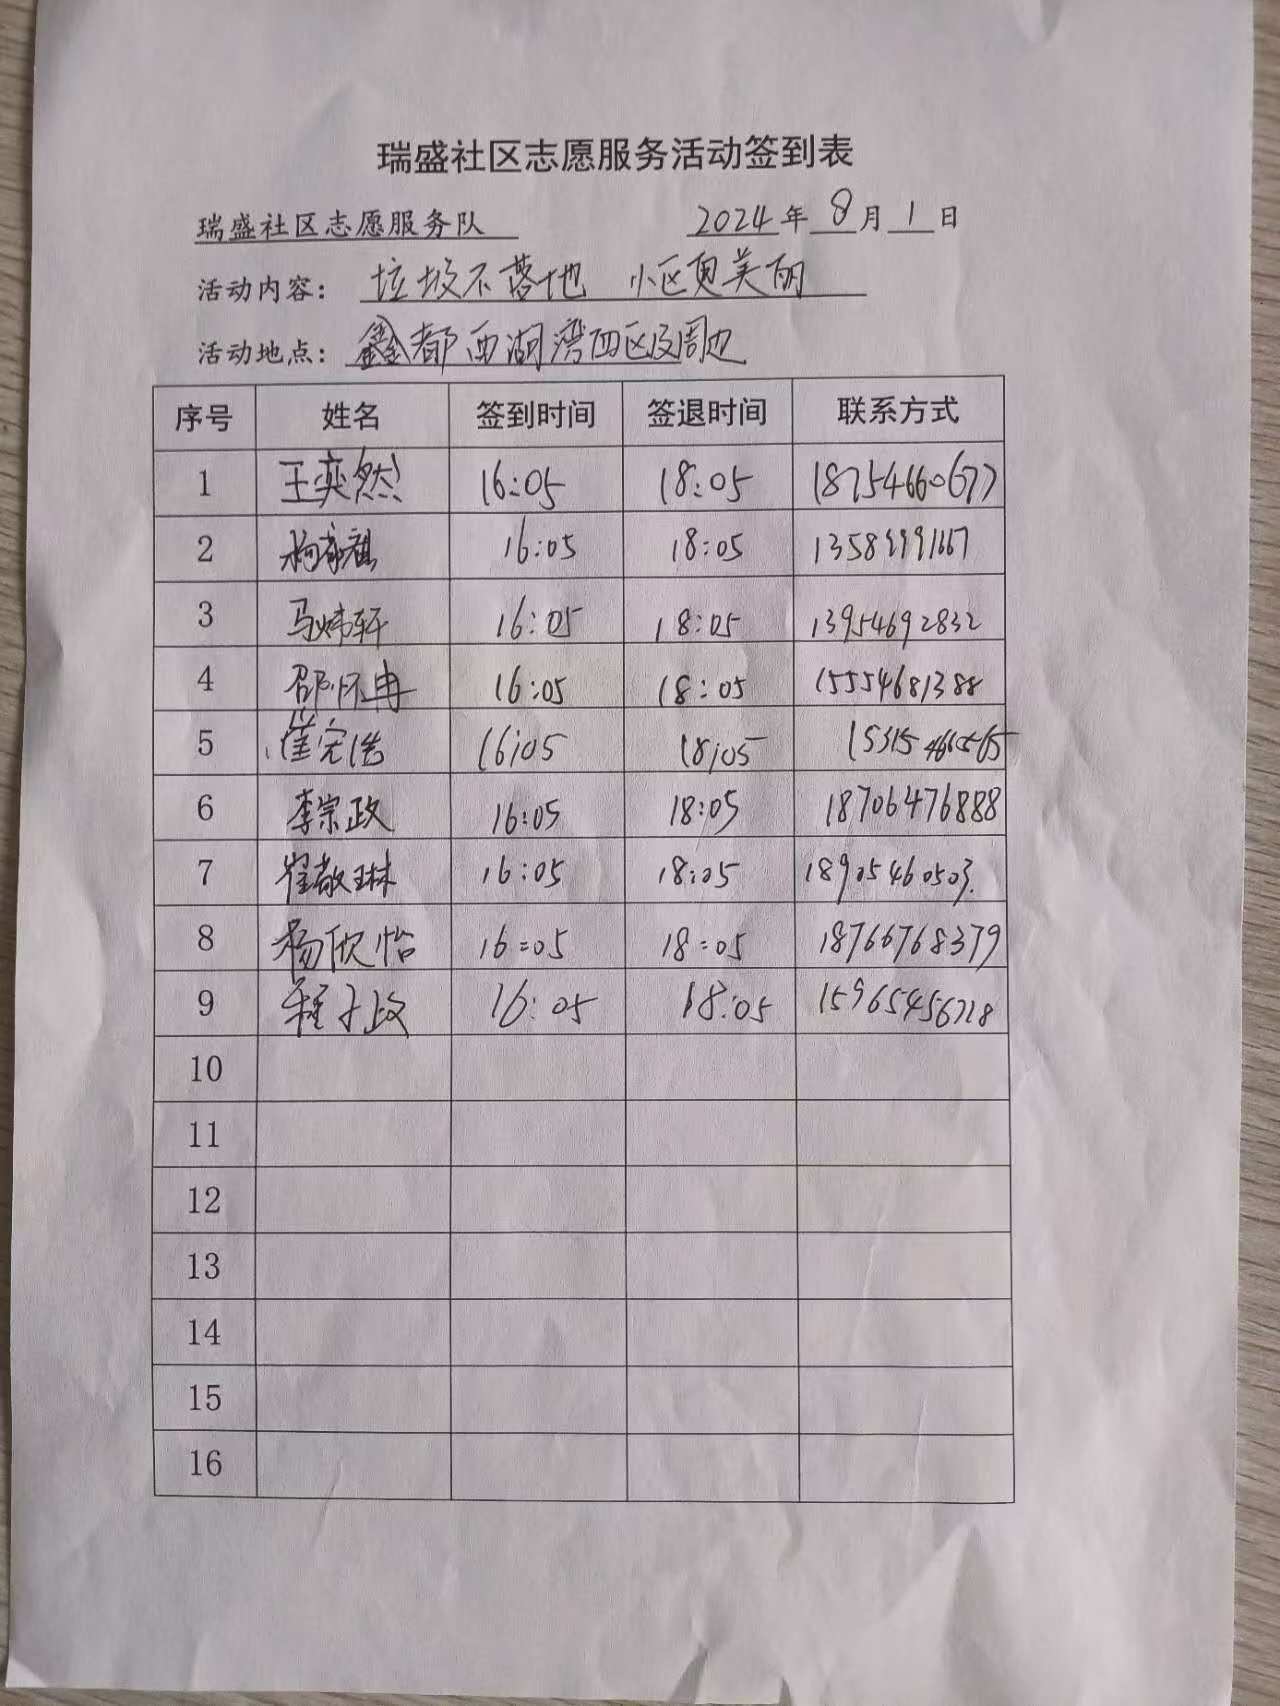 瑞盛社区志愿服务活动签到表
瑞盛社区志愿服务队 2024年8月1日
活动内容：垃圾不落地 小区更美丽
活动地点：鑫都西湖湾西区及周边
序号 姓名 签到时间 签退时间 联系方式
1 王奕然 16:05 18:05 18754660677
2 16:05 18:05
3 马炜轩 16:05 18:05 13954692832
4 邵怀冉 16:05 18:05 15554681388
5 崔完浩 16:05 18:05
6 李宗政 16:05 18:05 18706476888
7 崔敬琳 16:05 18:05 18905460503
8 杨欣怡 16:05 18:05 18766768379
9 程子政 16:05 18:05 15965456728
10
11
12
13
14
15
16